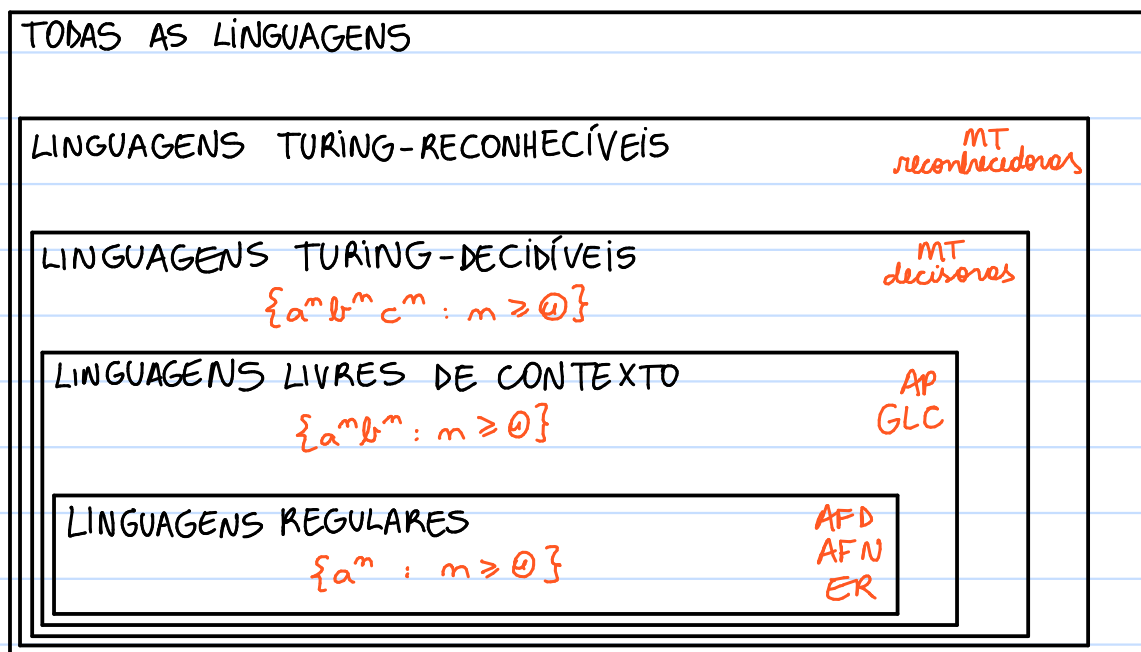 TODAS AS LINGUAGENS
LINGUAGENS TURING-RECONHECÍVEIS
MT
reconhecedoras
LINGUAGENS TURING-DECIDÍVEIS
MT
decisoras
{aⁿbⁿcⁿ : n ≥ 0}
LINGUAGENS LIVRES DE CONTEXTO
AP
{aⁿbⁿ : n ≥ 0}
GLC
LINGUAGENS REGULARES
AFD
AFN
{aⁿ : n ≥ 0}
ER